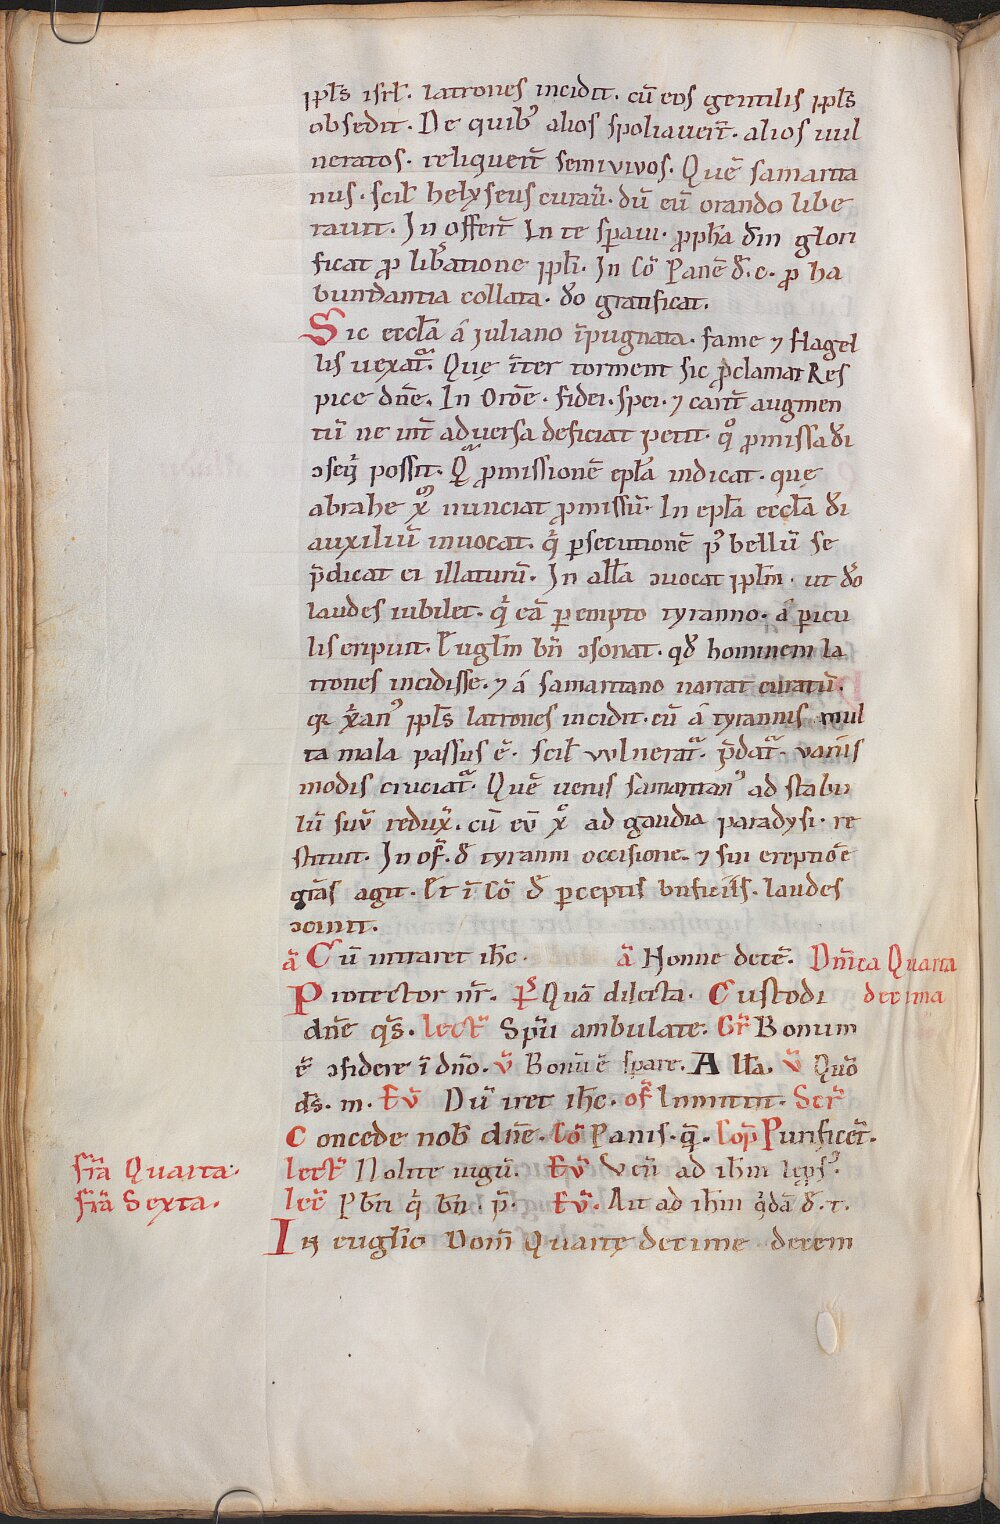 ppl̄s isrl̄. latrones incidit. cū eos gentilis ppl̄s
obsedit. De quibꝰ alios spoliauer̄t. alios uul
neratos. reliquer̄t semiuiuos. Quē samarita
nus. scil̄ helyseus curau̅. dū eū orando libe
rauit. In offert̄ In te spaui. ꝓph̄a dm̄ glori
ficat ꝓ lib̄atione ppl̄i. In Co᷒ Panē d̄. c. ꝓ ha
bundantia collata. do gratificat.
Sic eccl̄a á Juliano īpugnata. fame ⁊ flagel
lis uexat᷑. Quę īter torment sic ꝓclamat Res
pice dn̄e. In Orōe. fidei. spei. ⁊ carit̄ augmen
tū ne int̄ aduersa deficiat petit. qͦ ꝓmissa di
ↄseq̄ possit. Q ꝓmissionē epl̄a indicat. quę
abrahe xͦ nunciat ꝓmissū. In epl̄a eccl̄a di
auxiliū inuocat. q̇ ꝑsecutionē pꝰ bellū se
p̄dicat ei illaturū. In all̄a ↄuocat ppl̄m. ut do
laudes iubilet. q̇ eā ꝑempto tyranno. á ꝑicu
lis eripuit. Euğl̄m bn̄ ↄsonat. qd hominem la
trones incidisse. ⁊ á samaritano narrat curatū.
qr x̄anꝰ ppl̄s latrones incidit. cū á tyrannis mul
ta mala passus ē. scil̄ vvlnerat᷑. p̄dat᷑. variis
modis cruciat᷑. Quē uerus samaritanꝰ ad stabu
lū suū redux̄. cū eū xͦ ad gaudia paradysi. re
stituit. In of̄. d̄ tyranni occisione. ⁊ sui ereptiōe
gr̄as agit. Et ī Cō d̄ ꝑceptis bn̄ficiis. laudes
ↄcinit.
ā Cū intraret ih̄c. ā Nonne decē. Dn̄ica Quarta
Protector nr̄. Ps̄ Quā dilecta. Custodi decima
dn̄e qs̄. Lect̄ Spū ambulate. Gr̄ Bonum
ē ↄfidere ī dn̄o. v̄ Bonū ē sperare. All̄a. v̄ Quō
ds̄. m. Ev̄ Dū iret ih̄c. of̄ Inmittit. Secr̄
Concede nob̄ dn̄e. Cō Panis. q̄. Cop̄ Purificet̄.
fr̄ia Quarta. Lect̄ Nolite iugū. Ev̄ Uen̄ ad ih̄m leprosꝰ.
fr̄ia Sexta. Lec̄ Pbn̄ q̇ bn̄. p̄. Ev̄. Ait ad ih̄m q̇dā d̄. t.
In euğl̄io Dom̄ Quartę decime decem